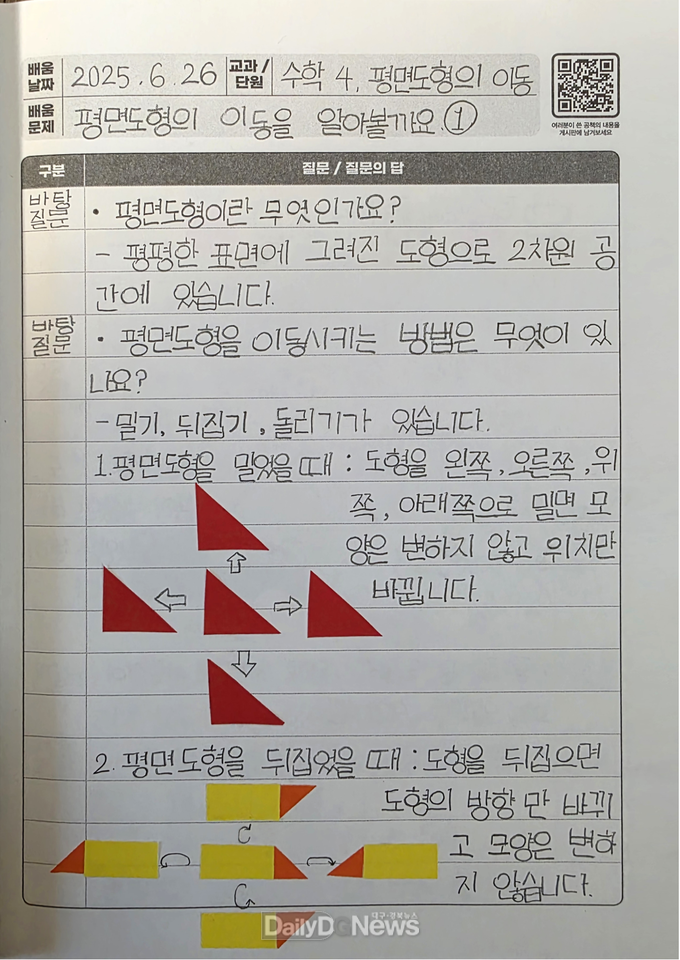 배움 날짜 2025. 6. 26 교과 / 단원 수학 4. 평면도형의 이동
배움 문제 평면도형의 이동을 알아볼까요. ①
여러분이 쓴 공책의 내용을
게시판에 남겨보세요
구분 질문 / 질문의 답
바탕 질문 • 평면도형이란 무엇인가요?
- 평평한 표면에 그려진 도형으로 2차원 공
간에 있습니다.
바탕 질문 • 평면도형을 이동시키는 방법은 무엇이 있
나요?
- 밀기, 뒤집기, 돌리기가 있습니다.
1. 평면도형을 밀었을 때 : 도형을 왼쪽, 오른쪽, 위
쪽, 아래쪽으로 밀면 모
양은 변하지 않고 위치만
바뀝니다.
2. 평면도형을 뒤집었을 때 : 도형을 뒤집으면
도형의 방향만 바뀌
고 모양은 변하
지 않습니다.
대구·경북뉴스
DailyDGNews